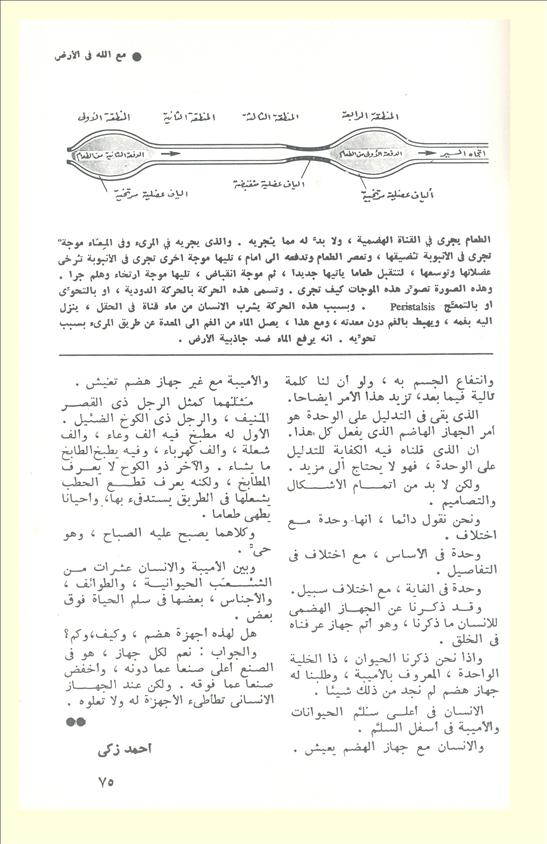 ● مع الله فى الأرض
المنطقة الرابعة
المنطقة الثالثة
المنطقة الثانية
المنطقة الأولى
اتجاه السير
الدفعة الأولى من الطعام
الدفعة الثانية من الطعام
ألياف عضلية مرتخية
الياف عضلية منقبضة
الياف عضلية مرتخية
الطعام يجرى فى القناة الهضمية ، ولا بدّ له مما يُجريه . والذى يجريه فى المرىء وفى الميعاء موجة
تجرى فى الأنبوبة تُضيقها ، وتعصر الطعام وتدفعه الى امام ، تليها موجة اخرى تجرى فى الأنبوبة تُرخى
عضلاتها وتوسعها ، لتتقبل طعاما ياتيها جديدا ، ثم موجة انقباض ، تليها موجة ارتخاء وهلم جرا .
وهذه الصورة تصوّر هذه الموجات كيف تجرى . وتسمى هذه الحركة بالحركة الدودية ، او بالتحوّى
او بالتمعّج Peristalsis . وبسبب هذه الحركة يشرب الانسان من ماء قناة فى الحقل ، ينزل
اليه بفمه ، ويهبط بالفم دون معدته ، ومع هذا ، يصل الماء من الفم الى المعدة عن طريق المرىء بسبب
تحوّيه . انه يرفع الماء ضد جاذبية الأرض .
وانتفاع الجسم به ، ولو أن لنا كلمة
تالية فيما بعد، تزيد هذا الأمر ايضاحا.
الذى بقى فى التدليل على الوحدة هو
أمر الجهاز الهاضم الذى يفعل كل هذا.
ان الذى قلناه فيه الكفاية للتدليل
على الوحدة ، فهو لا يحتاج الى مزيد .
ولكن لا بد من اتمام الأشكال
والتصاميم .
ونحن نقول دائما ، انها وحدة مع
اختلاف .
وحدة فى الأساس ، مع اختلاف فى
التفاصيل .
وحدة فى الغاية ، مع اختلاف سبيل.
وقد ذكرنا عن الجهاز الهضمى
للانسان ما ذكرنا ، وهو أتم جهاز عرفناه
فى الخلق .
واذا نحن ذكرنا الحيوان ، ذا الخلية
الواحدة ، المعروف بالأميبة ، وطلبنا له
جهاز هضم لم نجد من ذلك شيئا .
الانسان فى أعلى سلّم الحيوانات
والأميبة فى أسفل السلّم .
والانسان مع جهاز الهضم يعيش .
والأميبة مع غير جهاز هضم تعيش .
مثلهما كمثل الرجل ذى القصر
المنيف ، والرجل ذى الكوخ الضئيل .
الأول له مطبخ فيه ألف وعاء ، وألف
شعلة ، وألف كهرباء ، وفيه يطبخ الطابخ
ما يشاء . والآخر ذو الكوخ لا يعرف
المطابخ ، ولكنه يعرف قطع الحطب
يشعلها فى الطريق يستدفىء بها، وأحيانا
يطهى طعاما .
وكلاهما يصبح عليه الصباح ، وهو
حىّ .
وبين الأميبة والانسان عشرات من
الشعب الحيوانية ، والطوائف ،
والأجناس ، بعضها فى سلم الحياة فوق
بعض .
هل لهذه أجهزة هضم ، وكيف،وكم؟
والجواب : نعم لكل جهاز ، هو فى
الصنع أعلى صنعا عما دونه ، وأخفض
صنعا عما فوقه . ولكن عند الجهاز
الانسانى تطأطىء الأجهزة له ولا تعلوه .
أحمد زكى
٧٥